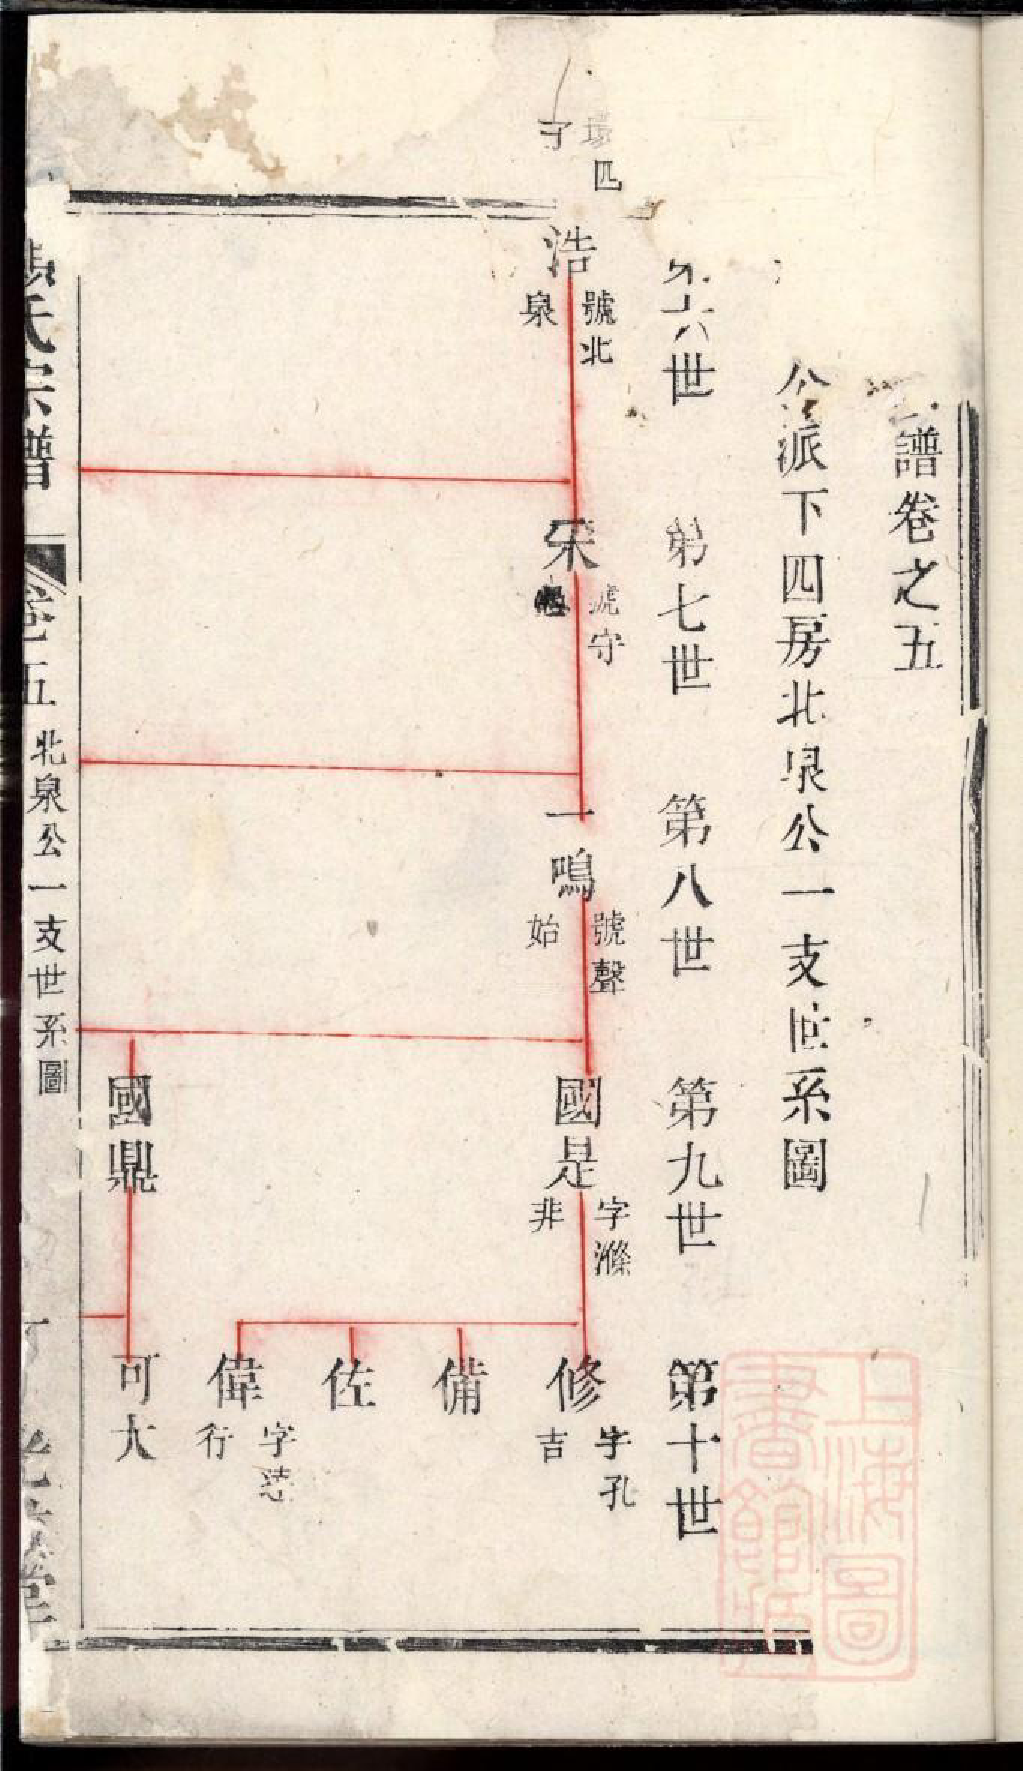 譜卷之五
公派下四房北泉公一支世系圖
六世 第七世 第八世 第九世 第十世
四
子
浩
號北
泉
宋
號守
一鳴
號聲
始
國是
字滌
非
修
字孔
吉
備
佐
偉
字
行
國鼎
可大
氏宗譜 卷五 北泉公一支世系圖
上海圖
書館藏